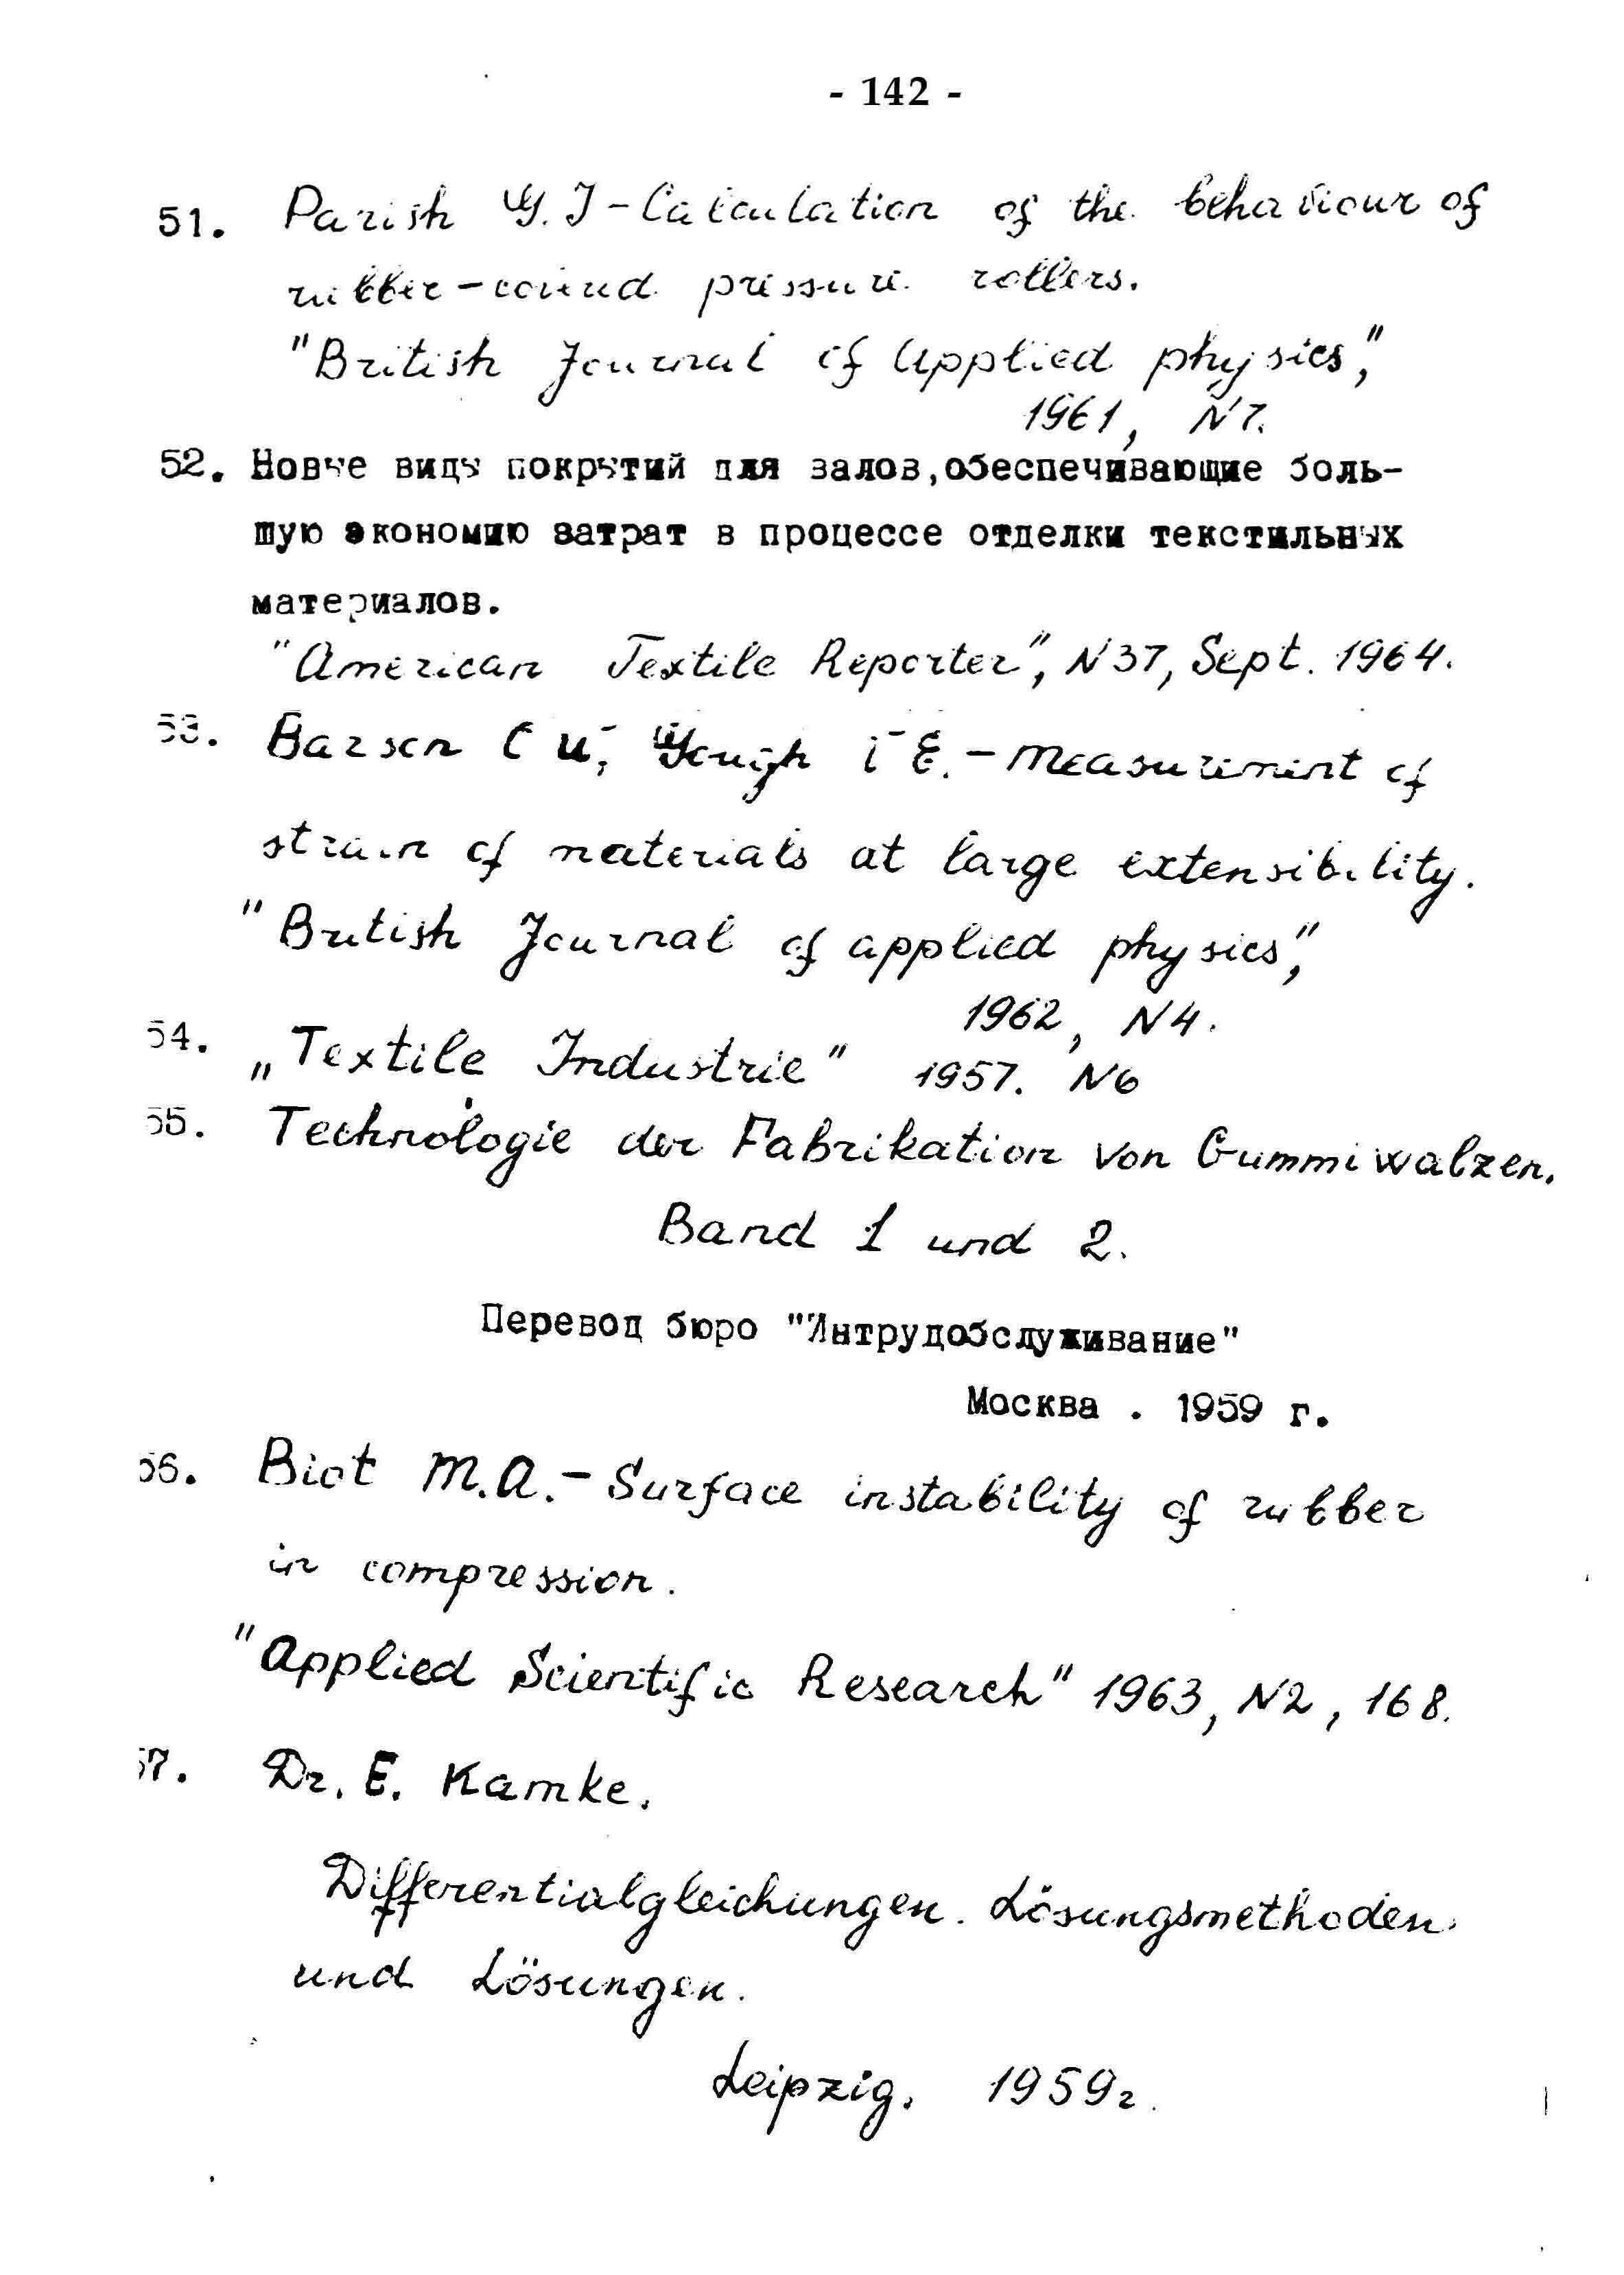 - 142 -
51. Parish G. J - Calculation of the behaviour of
rubber-covered pressure rollers.
"British Journal of Applied physics",
1961, N 7.
52. Новые виды покрытий для залов, обеспечивающие боль-
шую экономию затрат в процессе отделки текстильных
материалов.
"American Textile Reporter", N 37, Sept. 1964.
53. Barson C U, Gough E. - Measurement of
strain of materials at large extensibility.
"British Journal of applied physics",
1962, N 4.
54. „Textile Industrie" 1957. N 6
55. Technologie der Fabrikation von Gummiwalzen.
Band 1 und 2.
Перевод бюро "Интрудобслуживание"
Москва . 1959 г.
56. Biot M.A. - Surface instability of rubber
in compression.
"Applied Scientific Research" 1963, N 2, 168.
57. Dr. E. Kamke.
Differentialgleichungen. Lösungsmethoden
und Lösungen.
Leipzig. 1959г.